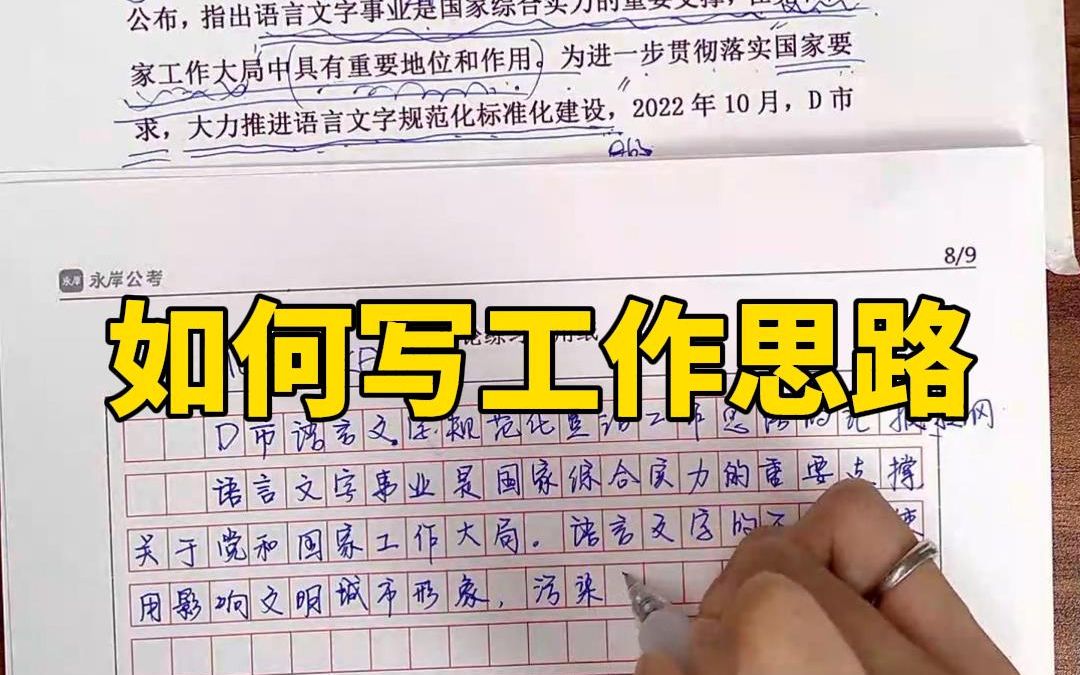 公布，指出语言文字事业是国家综合实力的重要支撑，
家工作大局中具有重要地位和作用。为进一步贯彻落实国家要
求，大力推进语言文字规范化标准化建设，2022 年 10 月，D 市
8/9
永岸 永岸公考
如何写工作思路
D市语言文 规范化 工作思路的汇报提纲
语言文字事业是国家综合实力的重要支撑
关于党和国家工作大局。语言文字的不
用影响文明城市形象，污染